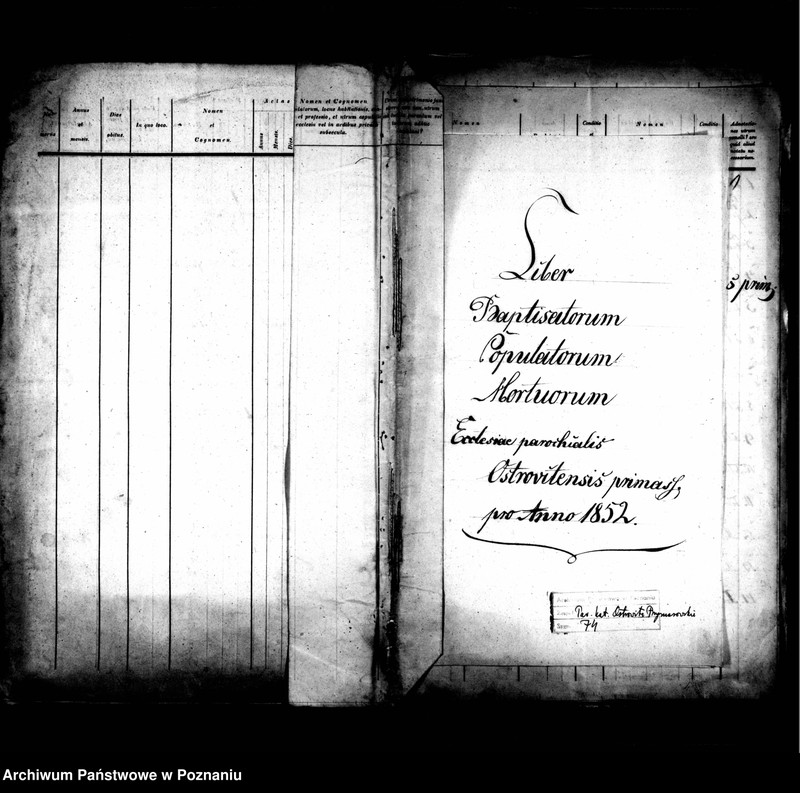 Annus
et
mensis.
Dies
obitus.
In quo loco.
Nomen
et
Cognomen.
Actus
Annus
Mensis.
Dies
Nomen et Cognomen
et professio, et utrum
ecclesia vel in aedibus
subsecuta.
Nomen
Conditio
Nomen
Conditio
Liber
Baptisatorum
Copulatorum
Mortuorum
Ecclesiae parochialis
Ostrovitensis primas,
pro Anno 1852.
s prim,
Par. kat. Ostrowite Prymasowskie
74
Archiwum Państwowe w Poznaniu